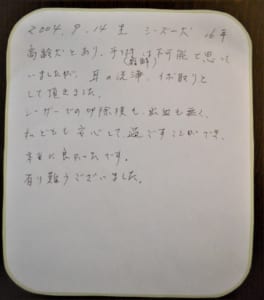 2004.9.14生 シーズー犬 16才
高齢犬とあり、手術は不可能と思って
(麻酔)
いましたが、耳の洗浄、イボ取りと
して頂きました。
レーザーでの切除後も、出血も無く、
私どもも安心して過ごすことができ、
本当に良かったです。
有り難うございました。